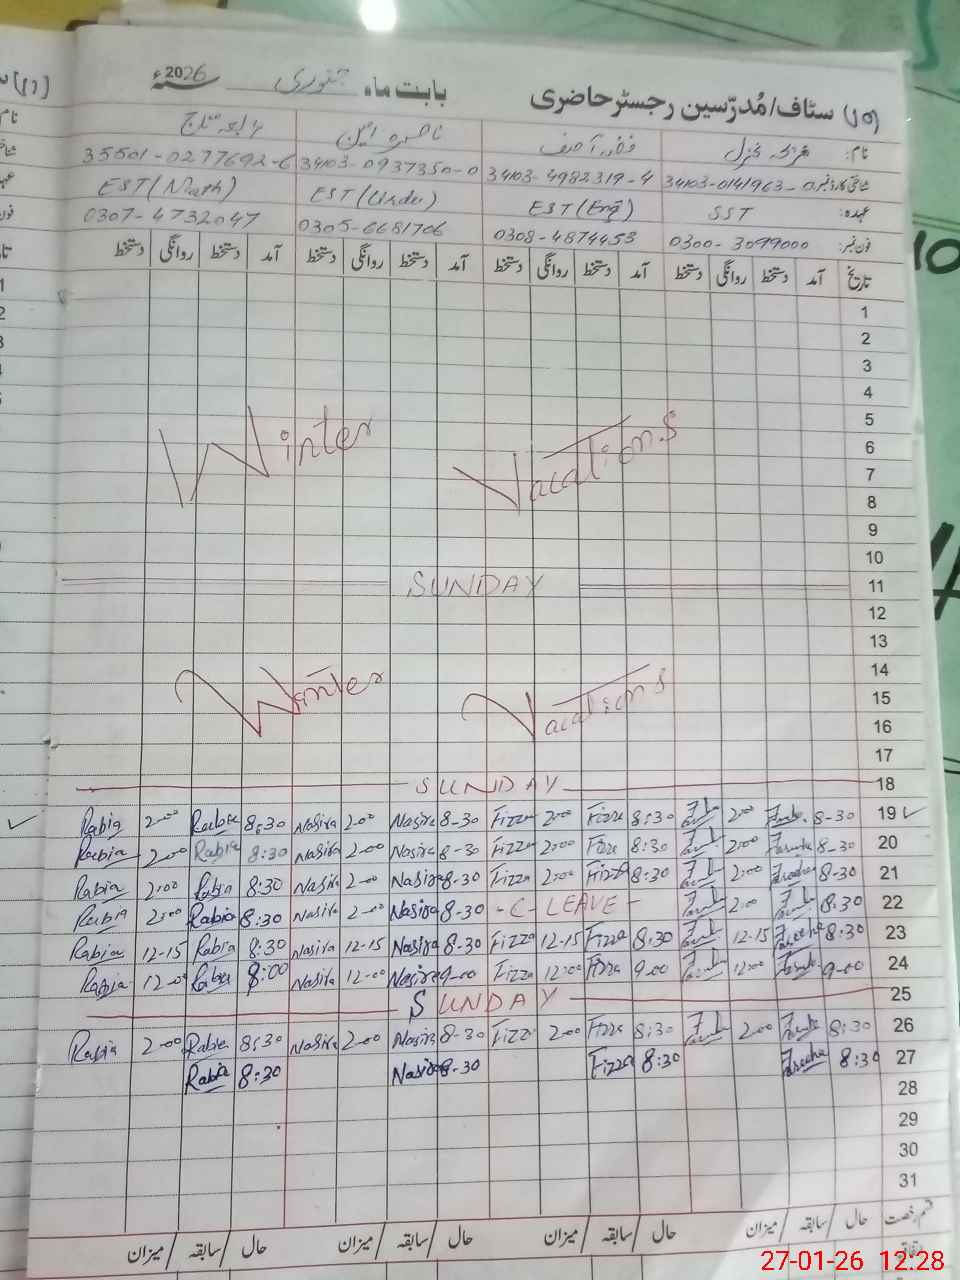 (۱۵) سٹاف/مُدرّسین رجسٹر حاضری بابت ماہ جنوری 2026ء
نام: کنول آصف ناصرہ
شناختی کارڈ نمبر 34103-0141963-0 34103-4982319-4 34103-0937350-0 35501-0277692-6
عہدہ: SST EST (Eng) EST (Urdu) EST (Math)
فون نمبر: 0300-3099000 0308-4874453 0305-6681706 0307-4732047
تاریخ آمد دستخط روانگی دستخط آمد دستخط روانگی دستخط آمد دستخط روانگی دستخط آمد دستخط روانگی دستخط
1
2
3
4
5
6
Winter Vacations
7
8
9
10
SUNDAY 11
12
13
14
Winter Vacations 15
16
17
SUNDAY 18
Rabia 2:00 Rabia 8:30 Nasira 2:00 Nasira 8-30 Fizza 2:00 Fizza 8:30 2:00 8-30 19
Rabia 2:00 Rabia 8:30 Nasira 2:00 Nasira 8-30 Fizza 2:00 Fizza 8:30 2:00 8-30 20
Rabia 2:00 Rabia 8:30 Nasira 2:00 Nasira 8-30 Fizza 2:00 Fizza 8:30 2:00 8-30 21
Rabia 2:00 Rabia 8:30 Nasira 2:00 Nasira 8-30 - C - LEAVE - 2:00 8:30 22
Rabia 12-15 Rabia 8:30 Nasira 12-15 Nasira 8-30 Fizza 12-15 Fizza 8:30 12-15 8:30 23
Rabia 12:00 Rabia 8:00 Nasira 12:00 Nasira 9:00 Fizza 12:00 Fizza 9:00 12:00 9-00 24
SUNDAY 25
Rabia 2:00 Rabia 8:30 Nasira 2:00 Nasira 8-30 Fizza 2:00 Fizza 8:30 2:00 8:30 26
Rabia 8:30 Nasira 8-30 Fizza 8:30 8:30 27
28
29
30
31
قسم رخصت حال سابقہ میزان حال سابقہ میزان حال سابقہ میزان حال سابقہ میزان
27-01-26 12:28